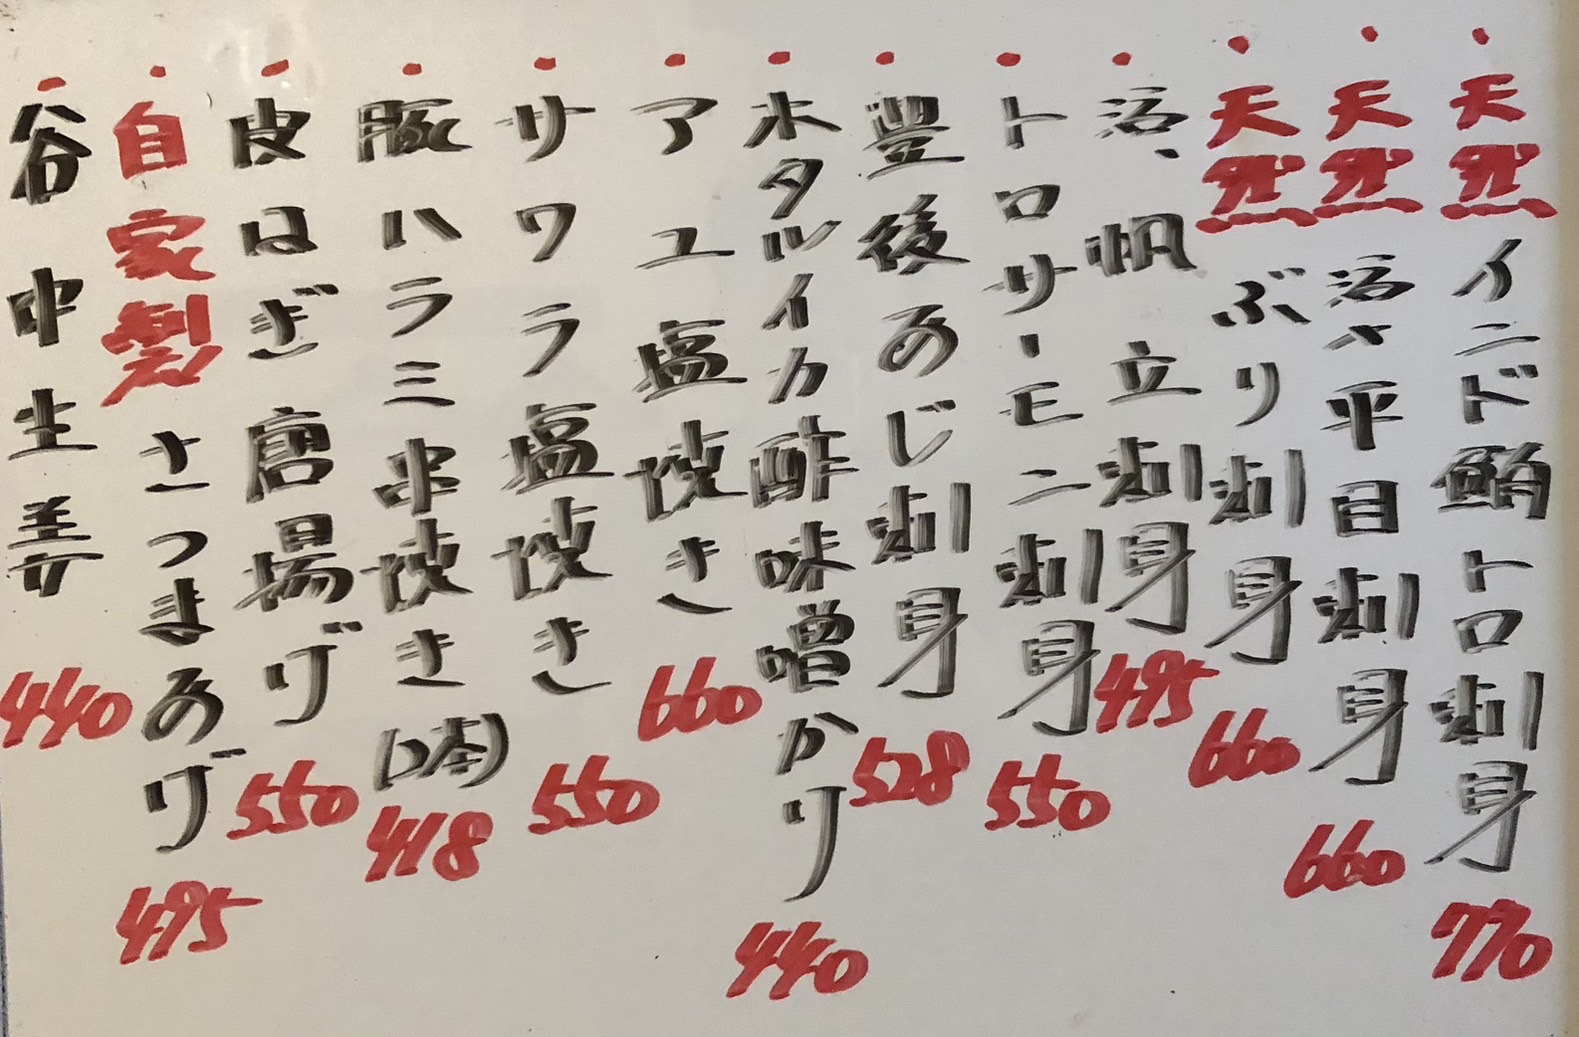 ・天然インド鮪トロ刺身 770
・天然活〆平目刺身 660
・天然ぶり刺身 660
・活帆立刺身 495
・トロサーモン刺身 550
・豊後あじ刺身 528
・ホタルイカ酢味噌かけ 440
・アユ塩焼き 660
・サワラ塩焼き 550
・豚ハラミ串焼き(2本) 418
・皮はぎ唐揚げ 550
・自家製さつまあげ 495
・谷中生姜 440